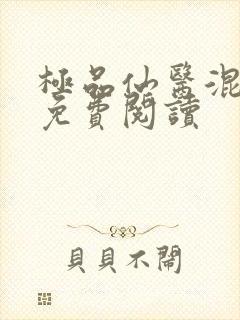 極品仙醫混
免費閱讀
貝貝不鬧